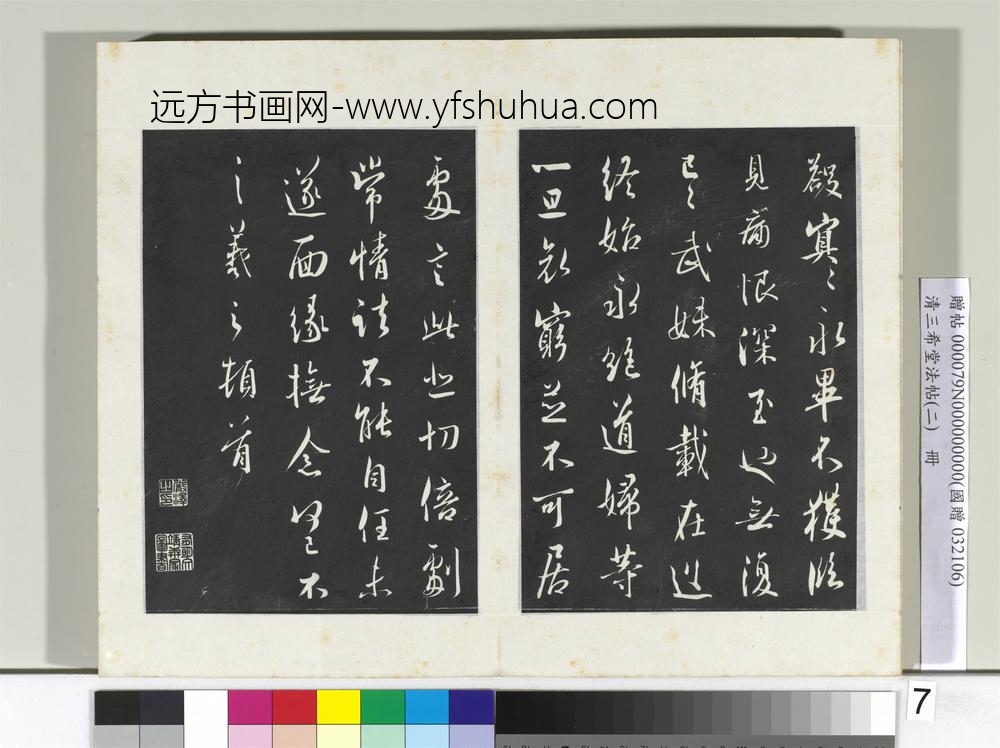 远方书画网-www.yfshuhua.com
永畢不獲臨
見痛恨深至也無復
已〻武妹脩載在遠
終始永絕道婦等
一旦哀窮並不可居
處言此悲切倍劇
常情諸不能自任未
遂面緣撫念不
一羲之頓首
贈帖 000079N000000000(國贈 032106)
清三希堂法帖(二) 冊
7